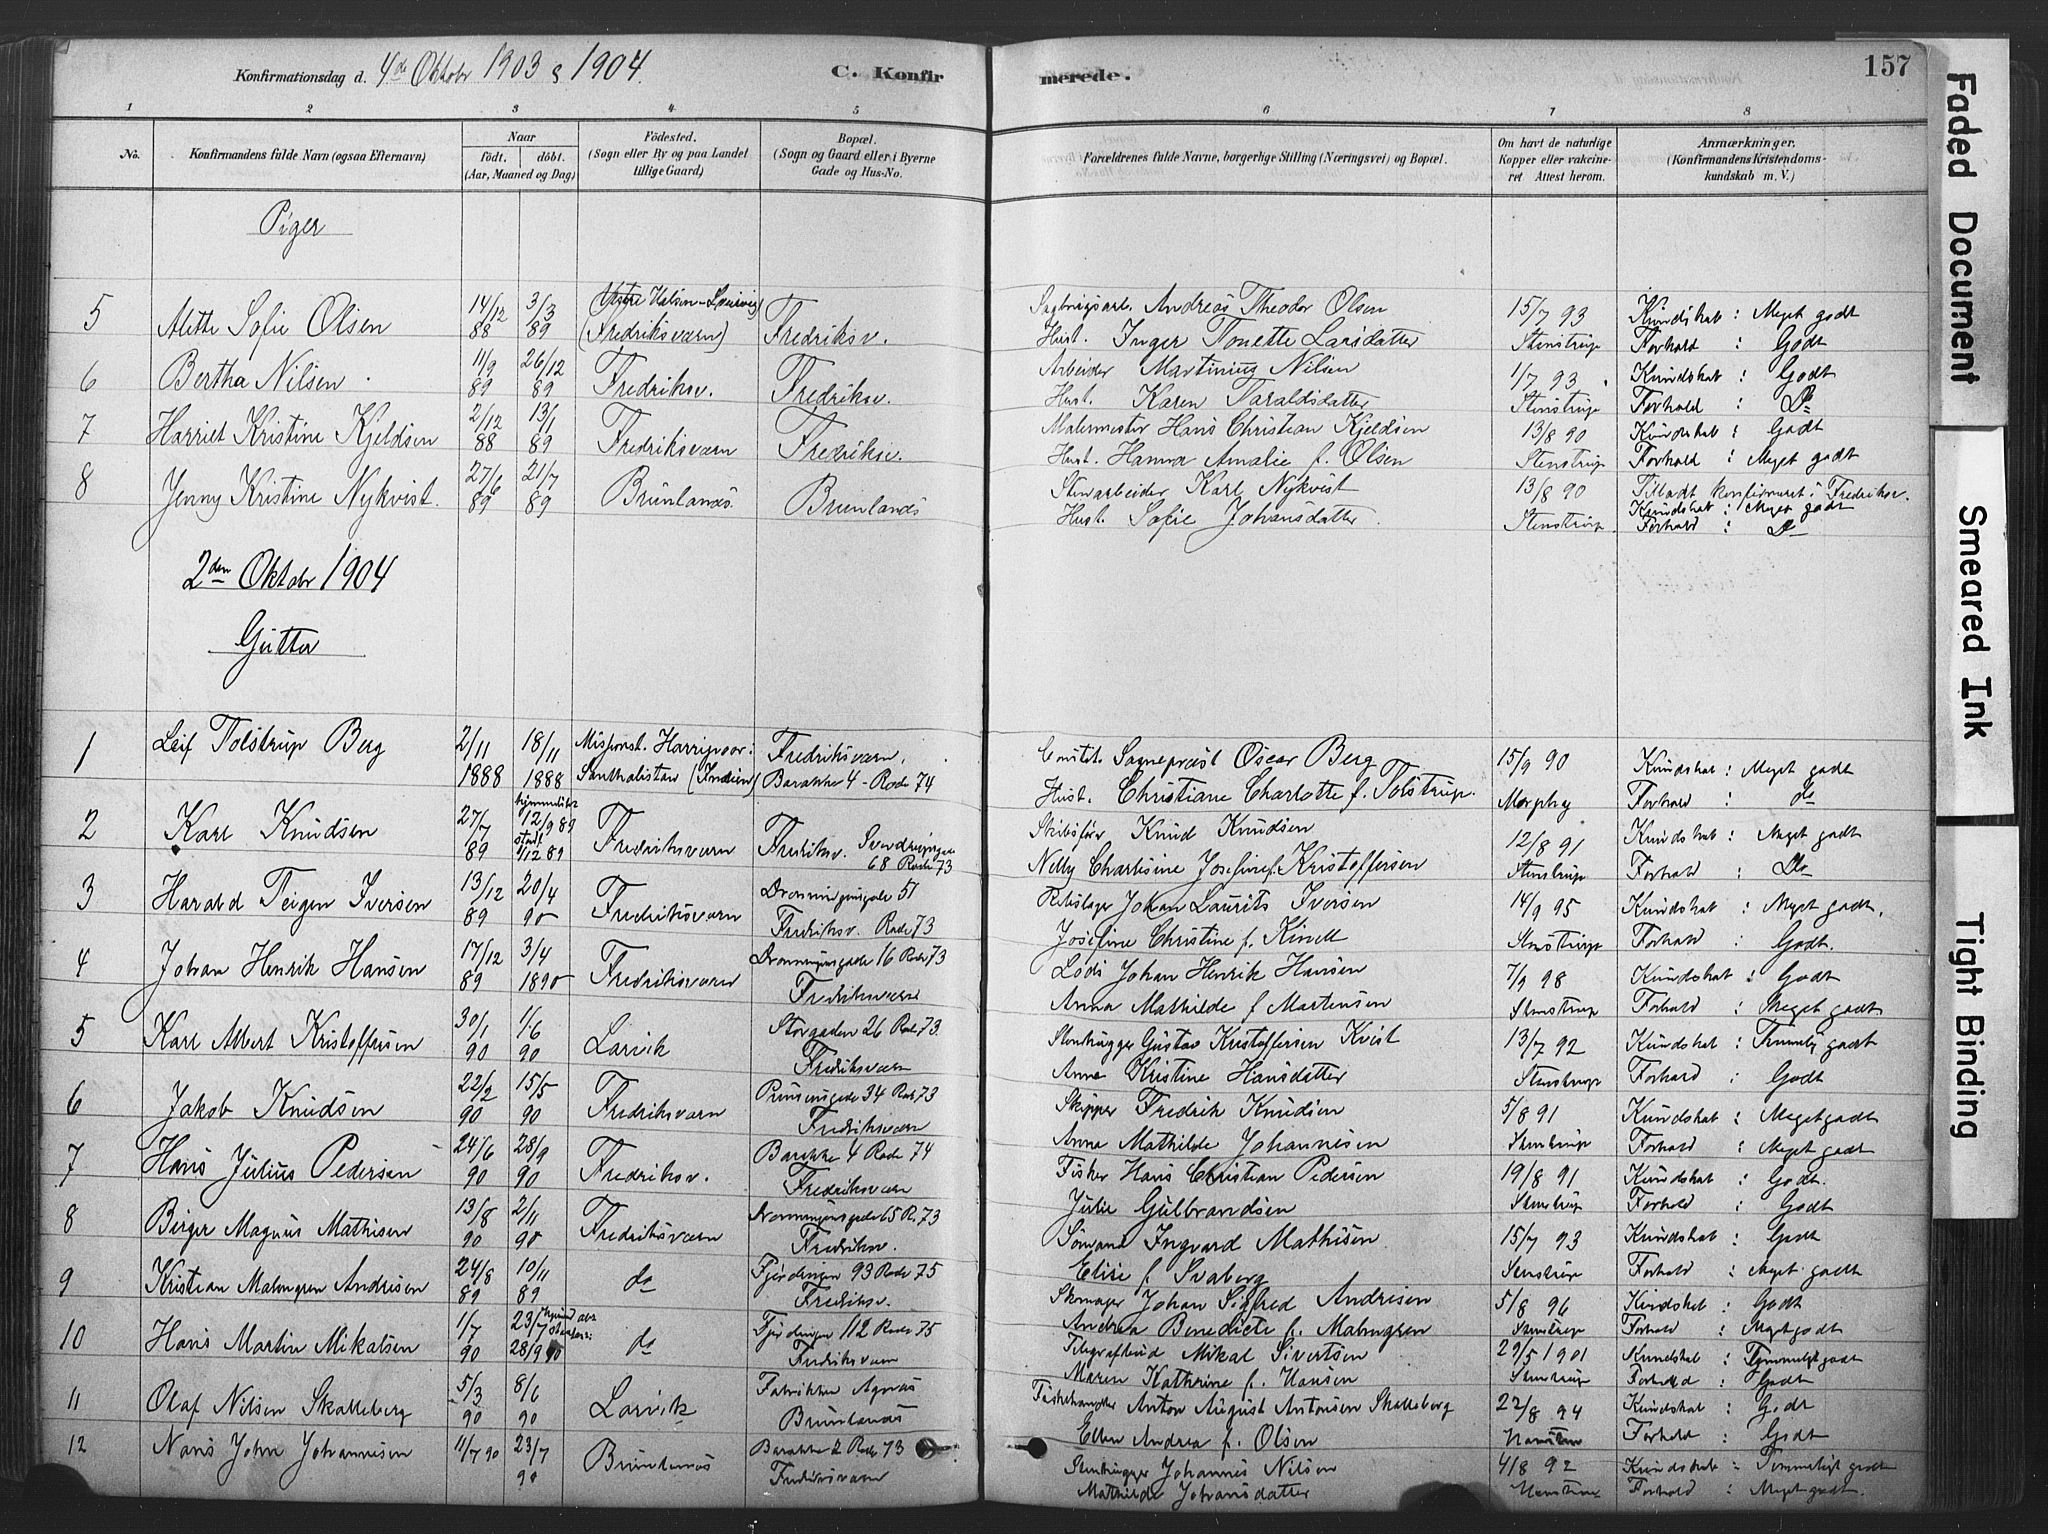 Konfirmationsdag d. 4de Oktobr 1903 & 1904.
C. Konfirmerede.
157
1 2 3 4 5 6 7 8
No.
Konfirmandens fulde Navn (ogsaa Efternavn)
Naar
født. døbt.
(Aar, Maaned og Dag)
Fødested.
(Sogn eller By og paa Landet
tillige Gaard)
Bopæl.
(Sogn og Gaard eller i Byerne
Gade og Hus-No.
Forældrenes fulde Navne, borgerlige Stilling (Næringsvei) og Bopæl.
Om havt de naturlige
Kopper eller vakcine-
ret Attest herom.
Anmærkninger.
(Konfirmandens Kristendoms-
kundskab m. V.)
Piger
5 Alette Sofie Olsen 14/12 88 3/3 89 (Fredriksværn) Fredriksv. Andreas Theodor Olsen 15/7 93 Kundskab : Meget godt
Hust. Inger Tonette Larsdatter Stenstrup Forhold : Godt
6 Bertha Nilsen 11/9 89 26/12 89 Fredriksv. Fredriksv. Arbeider Martinius Nilsen 1/7 93 Kundskab : Godt
Hust. Karen Taraldsdatter Stenstrup Forhold : Do
7 Harriet Kristine Kjeldsen 2/12 88 13/1 89 Fredriksværn Fredriksv. Malermester Hans Christian Kjeldsen 13/8 90 Kundskab : Godt
Hust. Hanna Amalie f. Olsen Stenstrup Forhold : Meget godt
8 Jenny Kristine Nykvist. 27/6 89 21/7 89 Brunlanæs Brunlanæs Stenarbeider Karl Nykvist 13/8 90 Tilladt konfirmeret i Fredriksv.
Hust. Sofie Johansdatter Stenstrup Kundskab : Meget godt
Forhold : Do
2den Oktobr 1904
Gutter
1 Leif Tolstrup Berg 2/11 1888 18/11 1888 Santhalistan (Indien) Fredriksværn. Barakke 4 - Rode 74 Const. Sogneprest Oscar Berg 15/9 90 Kundskab : Meget godt
Hust. Christiane Charlotte f. Tolstrup. Forhold : do
2 Karl Knudsen 27/7 89 hjemmedøbt 12/9 89 stadf. 1/12 89 Fredriksværn Fredriksv. 68 Rode 73 Skibsfører Knud Knudsen 12/8 91 Kundskab : Meget godt
Nelly Charlesine Josefine f. Kristoffersen Stenstrup Forhold : Do
3 Harald Teigen Iversen 13/12 89 20/4 90 Fredriksværn Dronningensgade 51 Fredriksv. Rode 73 Rebslager Johan Laurits Iversen 14/9 95 Kundskab : Meget godt.
Josefine Christine f. Stenstrup Forhold : Godt.
4 Johan Henrik Hansen 17/12 89 3/4 1890 Fredriksværn Dronningensgade 16 Rode 73 Fredriksværn Lods Johan Henrik Hansen 7/9 98 Kundskab : Godt
Anna Mathilde f Martensen Stenstrup Forhold : Meget godt
5 Karl Albert Kristoffersen 30/1 90 1/6 90 Larvik Storgaden 26 Rode 73 Fredriksværn Stenhugger Gustav Kristoffersen Kvist 13/7 92 Kundskab : Temmelig godt
Anne Kristine Hansdatter Stenstrup Forhold : Godt
6 Jakob Knudsen 22/2 90 15/5 90 Fredriksværn Prinsensgade 34 Rode 73 Fredriksværn Skipper Fredrik Knudsen 5/8 91 Kundskab : Meget godt
Anna Mathilde Johannesen Stenstrup Forhold : Meget godt
7 Hans Julius Pedersen 24/6 90 28/9 90 Fredriksv. Barakke 4 Rode 74 Fredriksværn Fisker Hans Christian Pedersen 19/8 91 Kundskab : Godt.
Julie Gulbrandsen Stenstrup Forhold : Godt
8 Birger Magnus Mathisen 13/8 90 2/11 90 Fredriksværn Dronningensgade 65 Ro. 73 Fredriksv. Sømand Ingvard Mathisen 15/7 93 Kundskab : Godt
Elise f. Svaberg Stenstrup Forhold : Meget godt
9 Kristian Malmgren Andrisen 24/8 89 10/11 89 do Fjerdingen 93 Rode 75 Fredriksv. Skomager Johan Sigfred Andrisen 5/8 96 Kundskab : Godt
Andrea Benedicte f. Malmgren Stenstrup Forhold : Meget godt
10 Hans Martin Mikalsen 1/7 90 23/7 28/9 90 do Fjerdingen 112 Rode 75 Fredriksværn Telegrafbud Mikal Sivertsen 29/5 1901 Kundskab : Temmeligt godt
Maren Kathrine f. Hansen Stenstrup Forhold : Godt
11 Olaf Nilsen Skalleberg 5/3 90 8/6 90 Larvik Fabrikken Agnæs Brunlanæs Fiskehandler Anton August Antonsen Skalleberg 22/8 94 Kundskab : Godt
Ellen Andrea f. Olsen Forhold : Godt
12 Hans John Johannesen 11/7 90 23/7 90 Brunlanæs Barakke 2 Rode 73 Fredriksværn Stenhugger Johannes Nilsen 4/8 92 Kundskab : Temmeligt godt
Mathilde Johansdatter Forhold : Meget godt.
Faded Document
Smeared Ink
Tight Binding